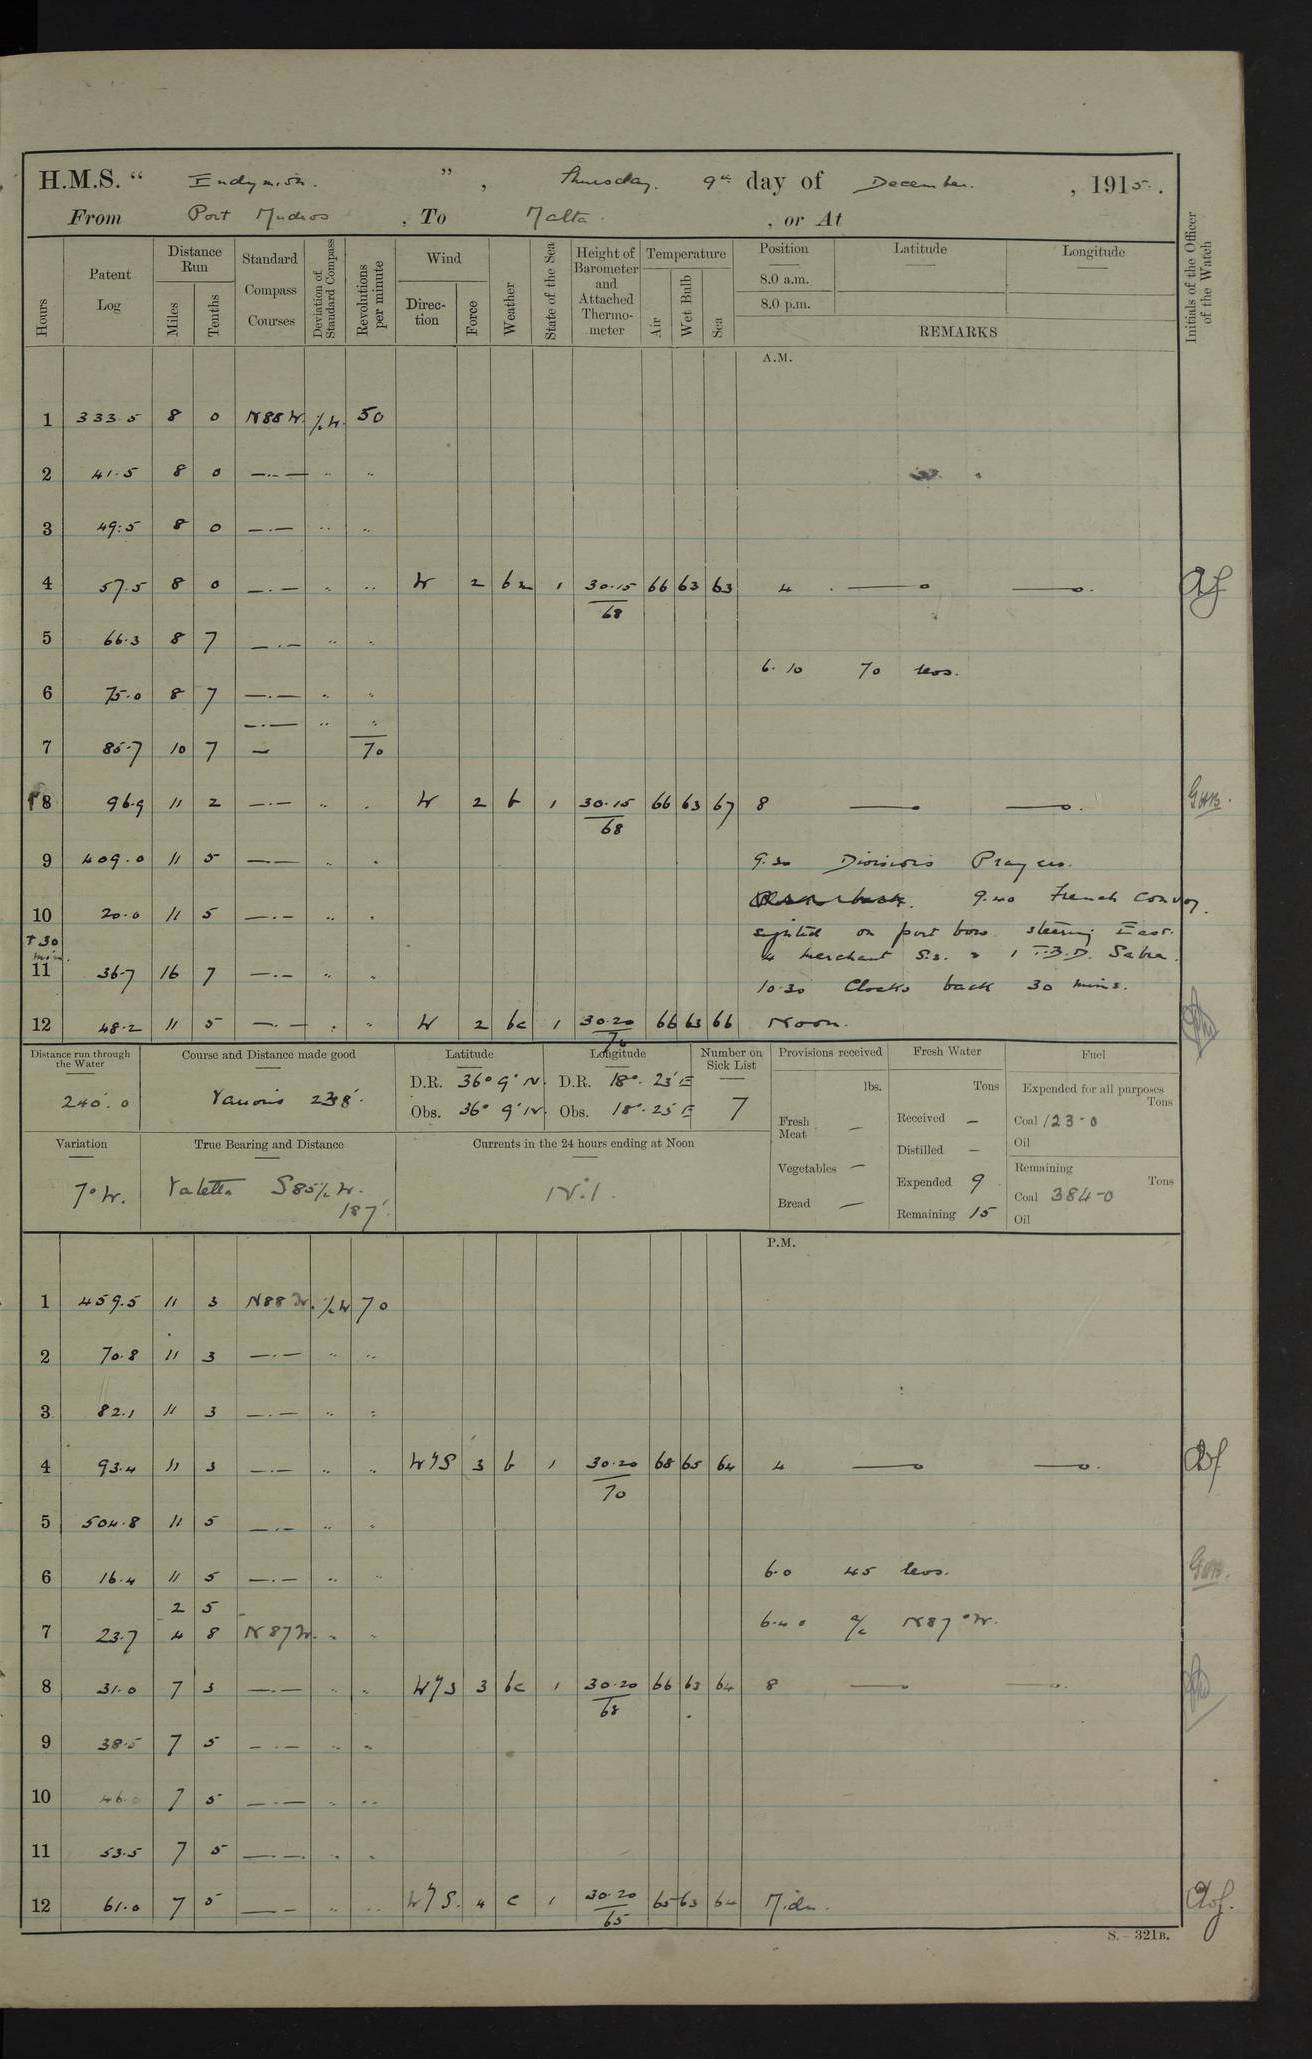 H.M.S. " Endymion. " , Thursday, 9th day of December. , 1915.
From Port Mudros , To Malta. , or At
Hours
Patent Log
Distance Run
Miles
Tenths
Standard Compass Courses
Deviation of Standard Compass
Revolutions per minute
Wind
Direction
Force
Weather
State of the Sea
Height of Barometer and Attached Thermometer
Temperature
Air
Wet Bulb
Sea
Position
8.0 a.m.
8.0 p.m.
Latitude
Longitude
REMARKS
Initials of the Officer of the Watch
A.M.
1 333.5 8 0 N88W. ½W. 50
2 41.5 8 0 —..— " "
3 49.5 8 0 —.— " "
4 57.5 8 0 —.— " " W 2 bz 1 30.15/68 66 63 63 4
5 66.3 8 7 —.— " "
6.10 70 revs.
6 75.0 8 7 —.— " "
—.— " "
7 85.7 10 7 — 70
8 96.9 11 2 —.— " " W 2 b 1 30.15/68 66 63 67 8 GHB.
9 409.0 11 5 —— " " 9.30 Divisions Prayers.
9.40 French Convoy
10 20.0 11 5 —.— " " sighted on port bow steering East.
+30 min. 4 merchant S.s. & 1 T.B.D. Sabre.
11 36.7 16 7 —.— " " 10.30 Clocks back 30 mins.
12 48.2 11 5 —.— " " W 2 bc 1 30.20/70 66 63 66 Noon.
Distance run through the Water
240.0
Course and Distance made good
Various 238'.
Latitude
D.R. 36° 9' N.
Obs. 36° 9' N.
Longitude
D.R. 18°. 23' E
Obs. 18°. 25' E
Number on Sick List
7
Provisions received
lbs.
Fresh Meat —
Vegetables —
Bread —
Fresh Water
Tons
Received —
Distilled —
Expended 9
Remaining 15
Fuel
Expended for all purposes
Tons
Coal 123-0
Oil
Remaining
Tons
Coal 384-0
Oil
Variation
7° W.
True Bearing and Distance
Valetta S85½W.
187'.
Currents in the 24 hours ending at Noon
Nil.
P.M.
1 459.5 11 3 N88W. ½W 70
2 70.8 11 3 —.— " "
3 82.1 11 3 —.— " "
4 93.4 11 3 —.— " " W'S 3 b 1 30.20/70 68 65 64 4
5 504.8 11 5 —.— " "
6 16.4 11 5 —.— " " 6.0 45 revs. GHB.
2 5
7 23.7 4 8 N87W. " " 6.40 a/c N87°W.
8 31.0 7 3 —.— " " W'S 3 bc 1 30.20/68 66 63 64 8
9 38.5 7 5 —.— " "
10 46.0 7 5 —.— " "
11 53.5 7 5 —.— " "
12 61.0 7 5 —— " " W'S. 4 c 1 30.20/65 65 63 64 Midn.
S.—321B.